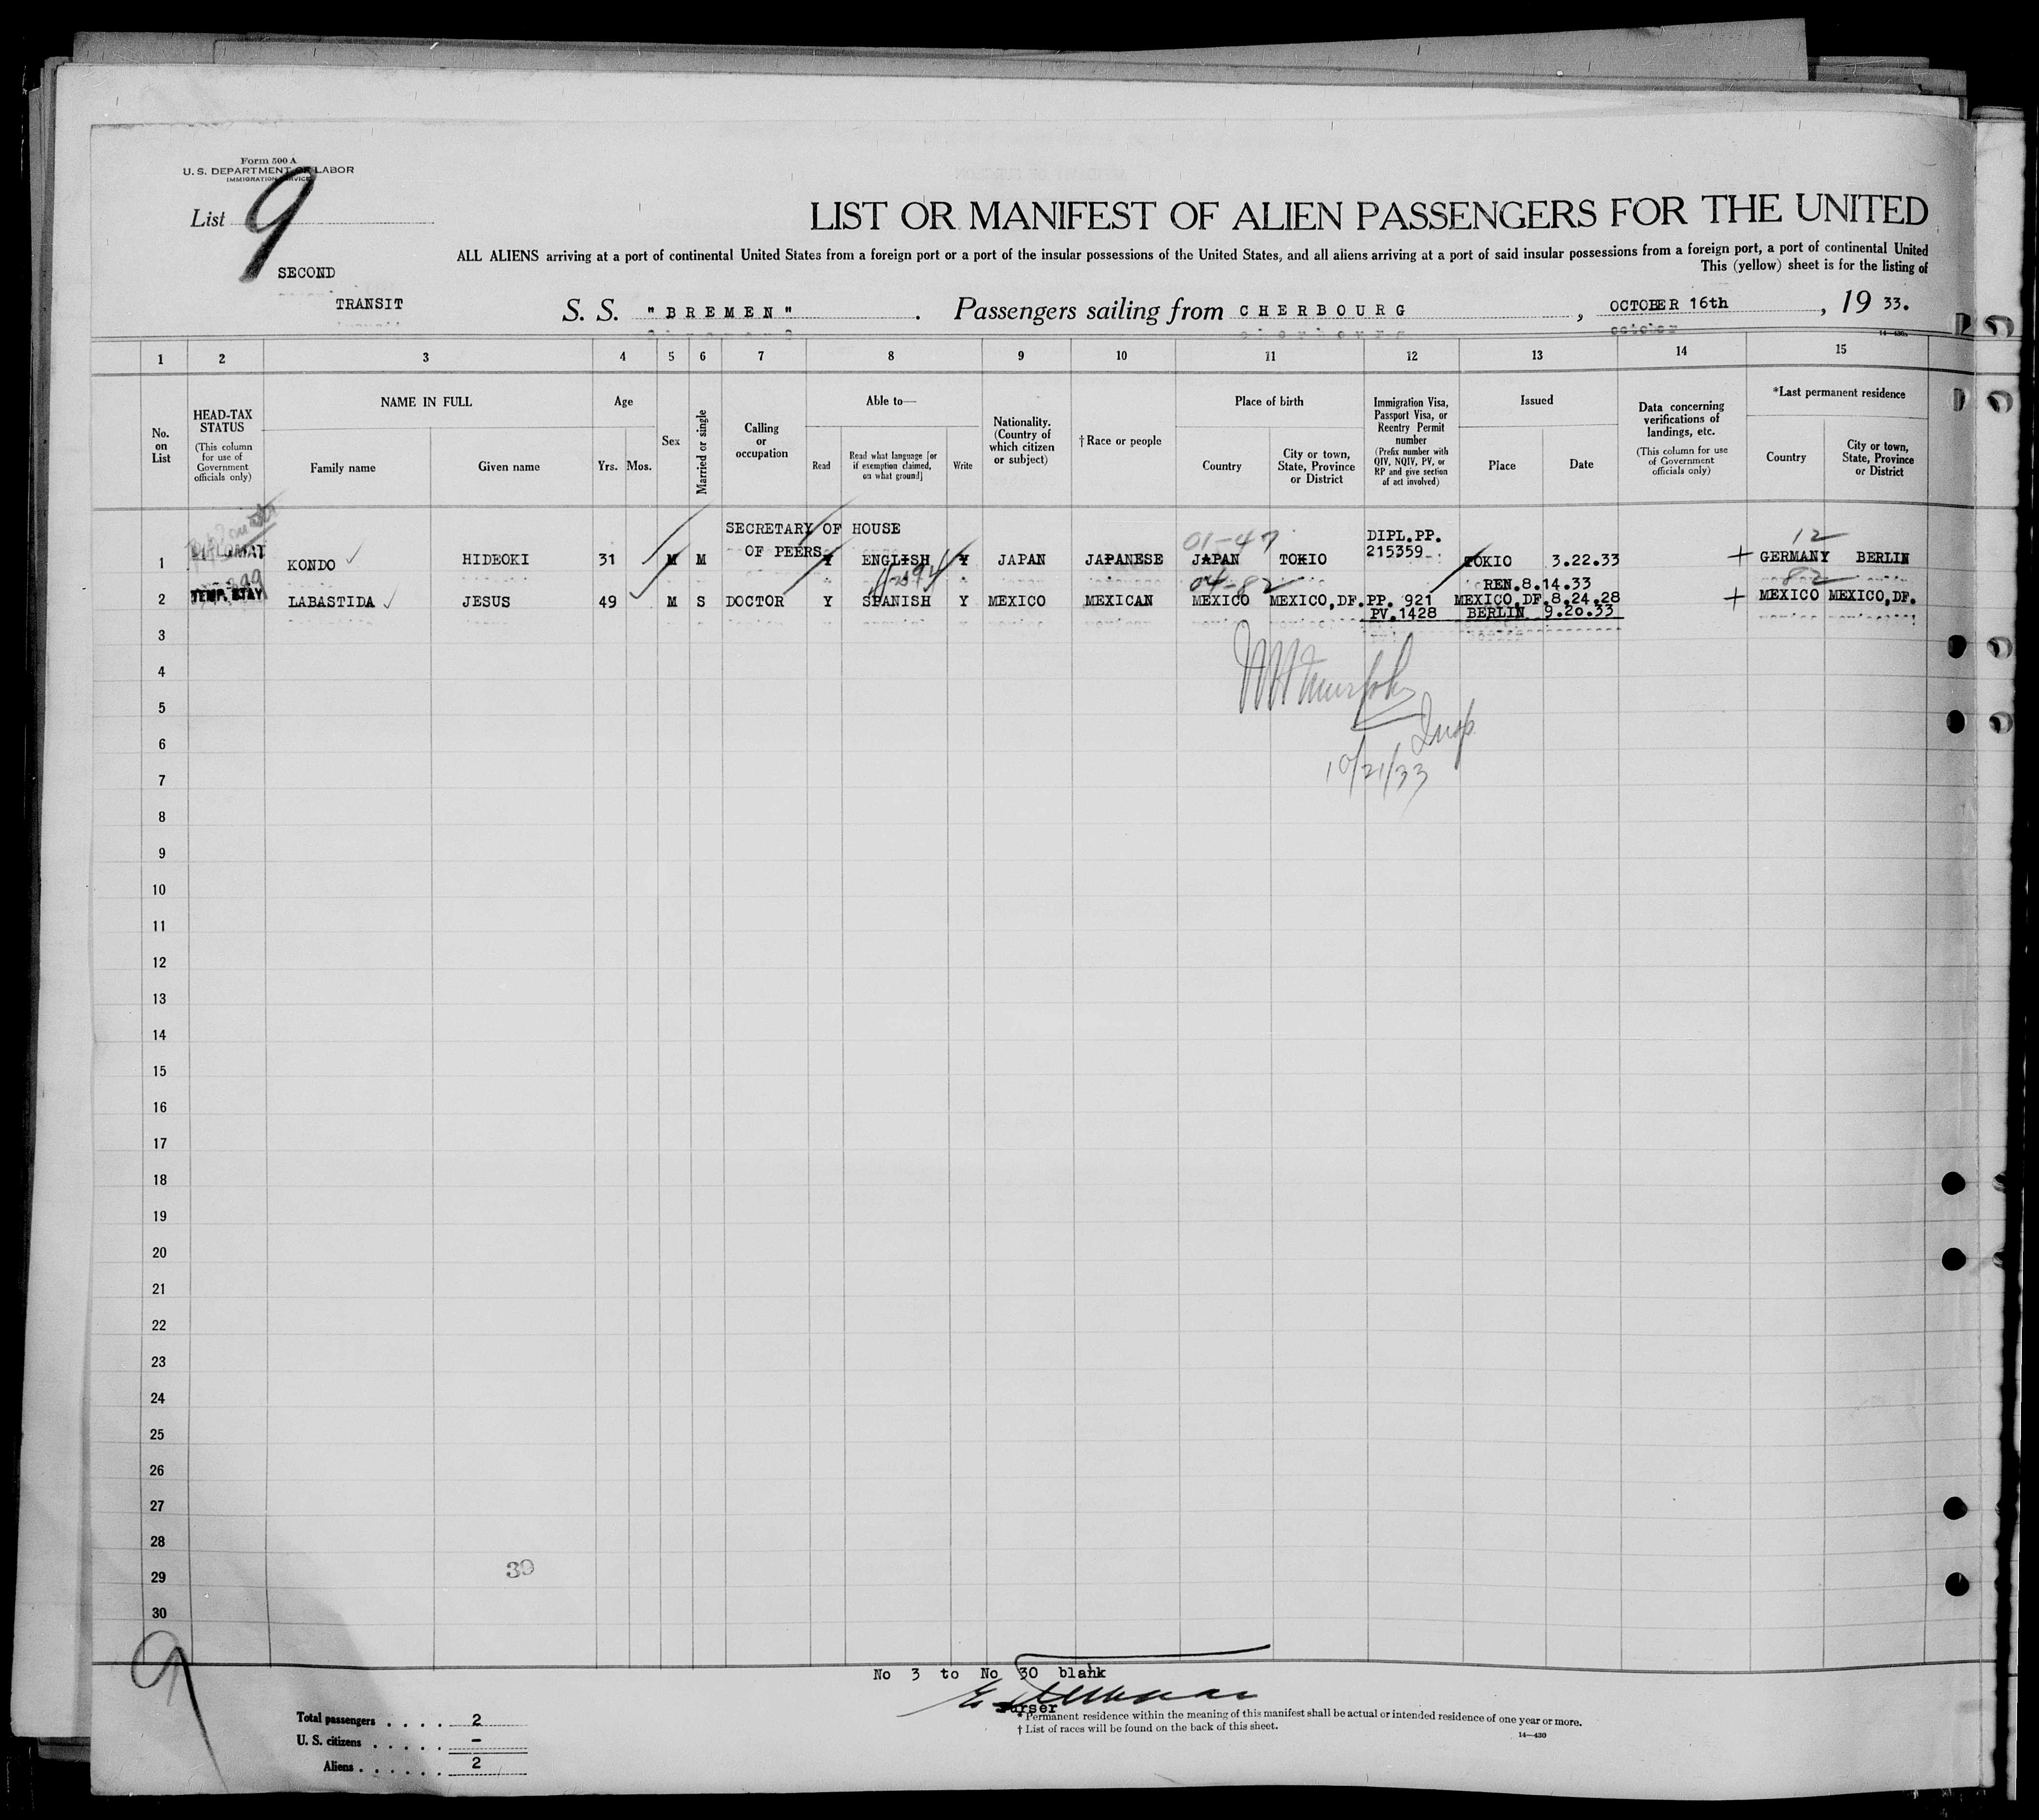 Form 500 A
U. S. DEPARTMENT OF LABOR
IMMIGRATION SERVICE
List 9
SECOND
TRANSIT
LIST OR MANIFEST OF ALIEN PASSENGERS FOR THE UNITED
ALL ALIENS arriving at a port of continental United States from a foreign port or a port of the insular possessions of the United States, and all aliens arriving at a port of said insular possessions from a foreign port, a port of continental United
This (yellow) sheet is for the listing of
S. S. "BREMEN" . Passengers sailing from CHERBOURG , OCTOBER 16th , 19 33.
14—430
1 2 3 4 5 6 7 8 9 10 11 12 13 14 15
No. on List
HEAD-TAX STATUS
(This column for use of Government officials only)
NAME IN FULL
Family name
Given name
Age
Yrs. Mos.
Sex
Married or single
Calling or occupation
Able to—
Read
Read what language [or if exemption claimed, on what ground]
Write
Nationality. (Country of which citizen or subject)
†Race or people
Place of birth
Country
City or town, State, Province or District
Immigration Visa, Passport Visa, or Reentry Permit number
(Prefix number with QIV, NQIV, PV, or RP and give section of act involved)
Issued
Place
Date
Data concerning verifications of landings, etc.
(This column for use of Government officials only)
*Last permanent residence
Country
City or town, State, Province or District
01-47
12
1 DIPLOMAT KONDO HIDEOKI 31 M M SECRETARY OF HOUSE OF PEERS Y ENGLISH Y JAPAN JAPANESE JAPAN TOKIO DIPL.PP. 215359 TOKIO 3.22.33 GERMANY BERLIN
REN.8.14.33
04-82
82
2 TEMP. STAY LABASTIDA JESUS 49 M S DOCTOR Y SPANISH Y MEXICO MEXICAN MEXICO MEXICO,DF. PP. 921 MEXICO,DF. 8.24.28 MEXICO MEXICO,DF.
PV.1428 BERLIN 9.20.33
3
4
5
Insp.
6
7
10/21/33
8
9
10
11
12
13
14
15
16
17
18
19
20
21
22
23
24
25
26
27
28
29
30
30
9
No 3 to No 30 blank
Purser
*Permanent residence within the meaning of this manifest shall be actual or intended residence of one year or more.
† List of races will be found on the back of this sheet.
14—430
Total passengers . . . . 2
U. S. citizens . . . . . –
Aliens . . . . . . 2